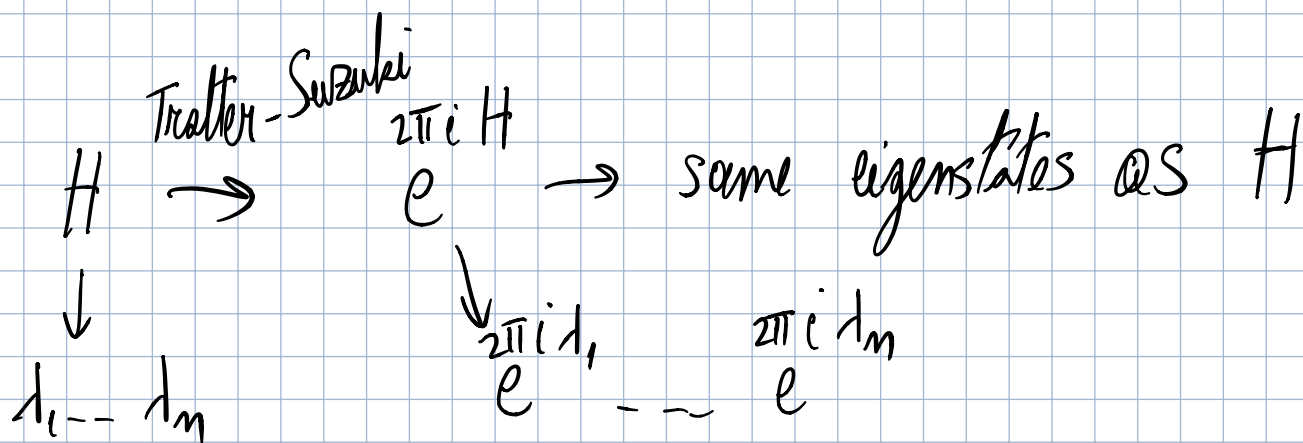 Trotter-Suzuki
H → e^{2πiH} → same eigenstates as H
↓ ↘
λ₁ -- λₙ e^{2πiλ₁} - - - e^{2πiλₙ}